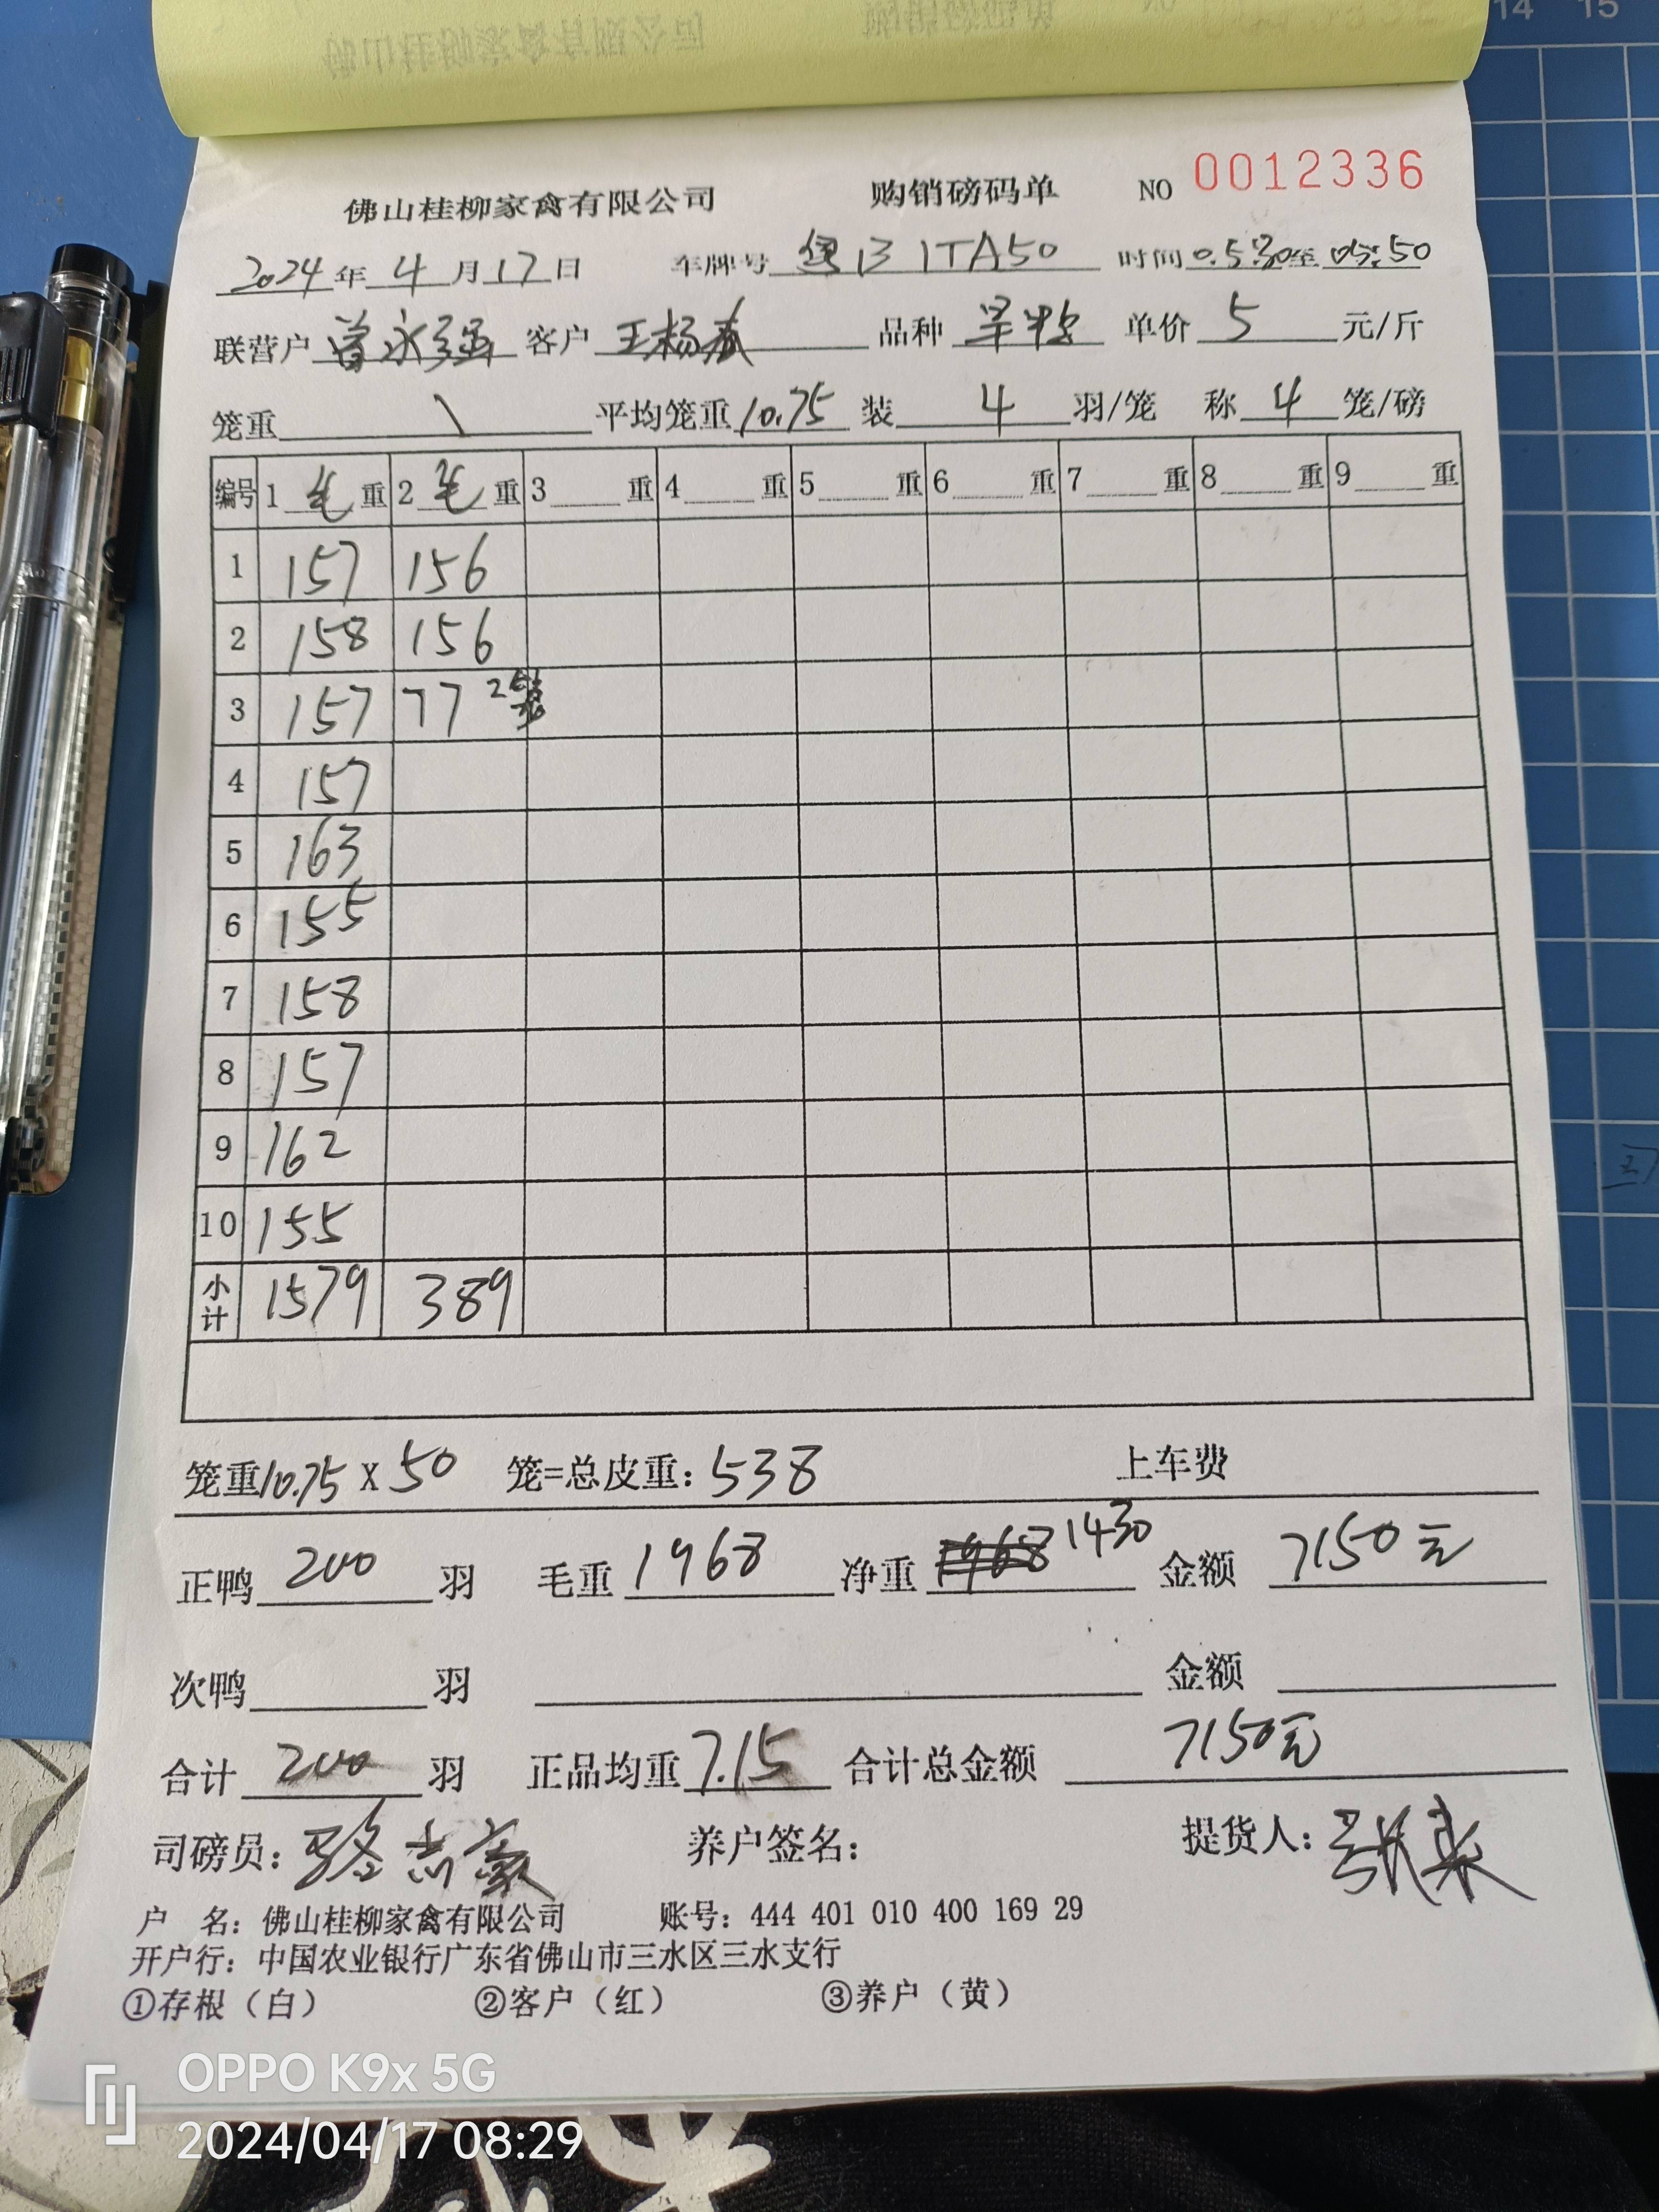 14 15
佛山桂柳家禽有限公司 购销磅码单 NO 0012336
2024年 4 月 17 日 车牌号 粤B 1TA50 时间 0.5:30至 05:50
联营户 曾永强 客户 王杨春 品种 单价 5 元/斤
笼重 \ 平均笼重 10.75 装 4 羽/笼 称 4 笼/磅
编号 1 毛 重 2 毛 重 3 重 4 重 5 重 6 重 7 重 8 重 9 重
1 157 156
2 158 156
3 157 77 2
4 157
5 163
6 155
7 158
8 157
9 162
10 155
小计 1579 389
笼重10.75 X 50 笼=总皮重: 538 上车费
正鸭 200 羽 毛重 1968 净重 1968 1430 金额 7150元
次鸭 羽 金额
合计 200 羽 正品均重 7.15 合计总金额 7150元
司磅员: 骆志豪 养户签名: 提货人:
户 名: 佛山桂柳家禽有限公司 账号: 444 401 010 400 169 29
开户行: 中国农业银行广东省佛山市三水区三水支行
①存根(白) ②客户(红) ③养户(黄)
OPPO K9x 5G
2024/04/17 08:29